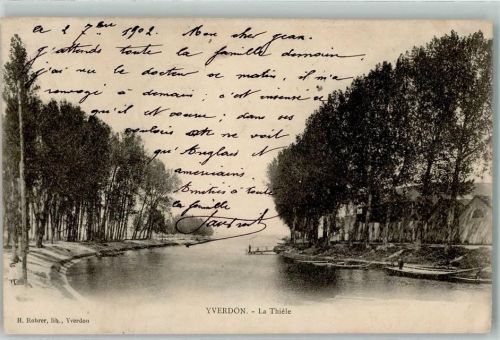 a 2 7bre 1902. Mon cher Jean.
J'attends toute la famille demain,
j'ai vu le docteur ce matin, il m'a
renvoyé à demain; c'est insensé ce
qu'il est couru, dans ses
on ne voit
qu'Anglais et
américains.
Amitiés à toute
la famille
YVERDON. - La Thièle
H. Rohrer, lib., Yverdon